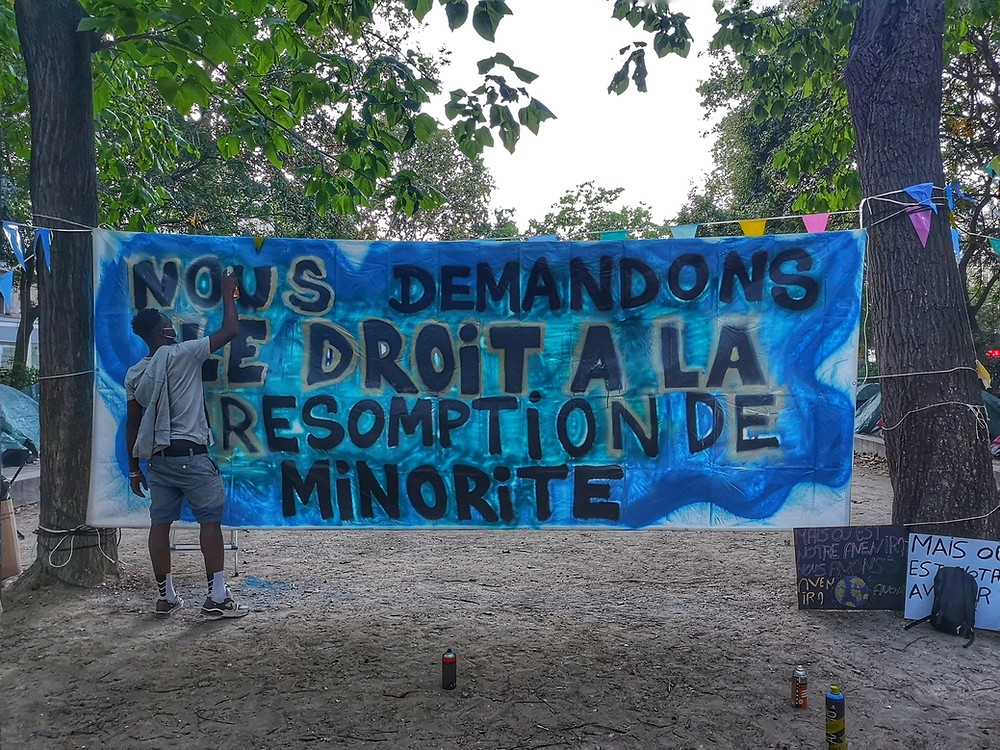 NOUS DEMANDONS
LE DROIT A LA
RESOMPTION DE
MINORITE
MAIS OU EST
NOTRE AVENIR?
NOUS AVONS
AVEN
IR?
MAIS OÙ
EST NOTR
AV